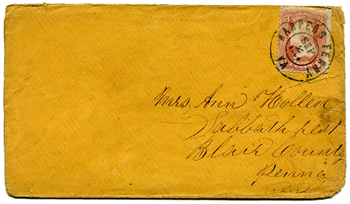 HARPERS FERRY
Mrs. Ann Hollen
Sabbath rest
Blair County
Penna